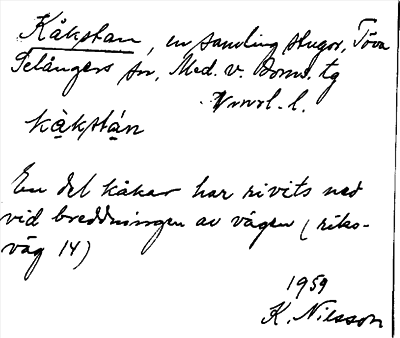 Kåkstan, en samling stugor, Töva
Selångers sn, Med. v. Doms. tg
Vnorl. l.
kå̀kstá̤n
En del kåkar har rivits ned
vid breddningen av vägen (riks-
väg 14)
1959
K. Nilsson